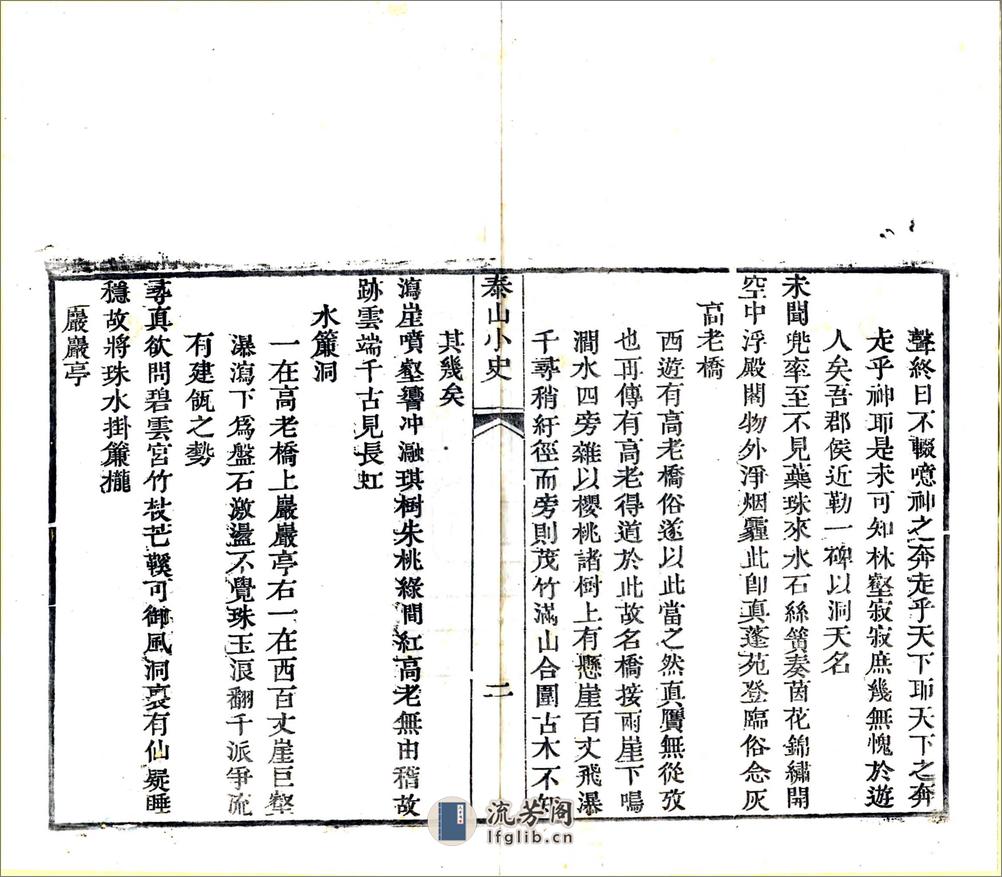 聲終日不輟噫神之奔走乎天下耶天下之奔
走乎神耶是未可知林壑寂寂庶幾無愧於遊
人矣吾郡侯近勒一碑以洞天名
未聞兜率至不見蘂珠來水石絲簧奏茵花錦繡開
空中浮殿閣物外淨烟霾此卽真蓬苑登臨俗念灰
高老橋
西遊有高老橋俗遂以此當之然真贗無從攷
也再傳有高老得道於此故名橋接兩崖下鳴
澗水四旁雜以櫻桃諸樹上有懸崖百丈飛瀑
千尋稍紆徑而旁則茂竹滿山合圍古木不知
泰山小史
二
其幾矣
瀉崖噴壑響冲瀜琪樹朱桃綠間紅高老無由稽故
跡雲端千古見長虹
水簾洞
一在高老橋上巖巖亭右一在西百丈崖巨壑
瀑瀉下爲盤石激盪不覺珠玉浪翻千派爭流
有建瓴之勢
尋真欲問碧雲宮竹杖芒鞵可御風洞裏有仙疑睡
穩故將珠水掛簾櫳
巖巖亭
流芳阁
lfglib.cn